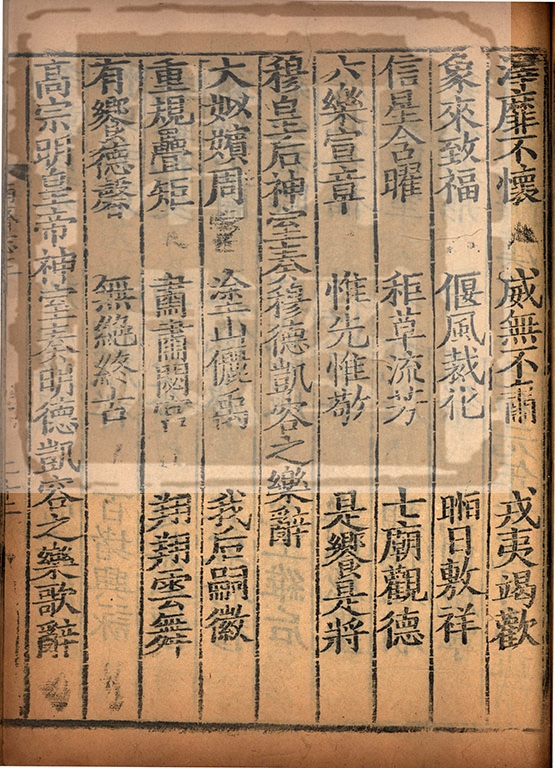 澤靡不懷 威無不肅 戎夷竭歡
象來致福 偃風裁化 暅日敷祥
信星含曜 秬草流芳 七廟觀德
六樂宣章 惟先惟敬 是饗是將
穆皇后神室奏穆德凱容之樂辭
大姒嬪周 塗山儷禹 我后嗣徽
重規疊矩 肅肅閟宮 翔翔雲舞
有饗德馨 無絕終古
高宗明皇帝神室奏明德凱容之樂歌辭